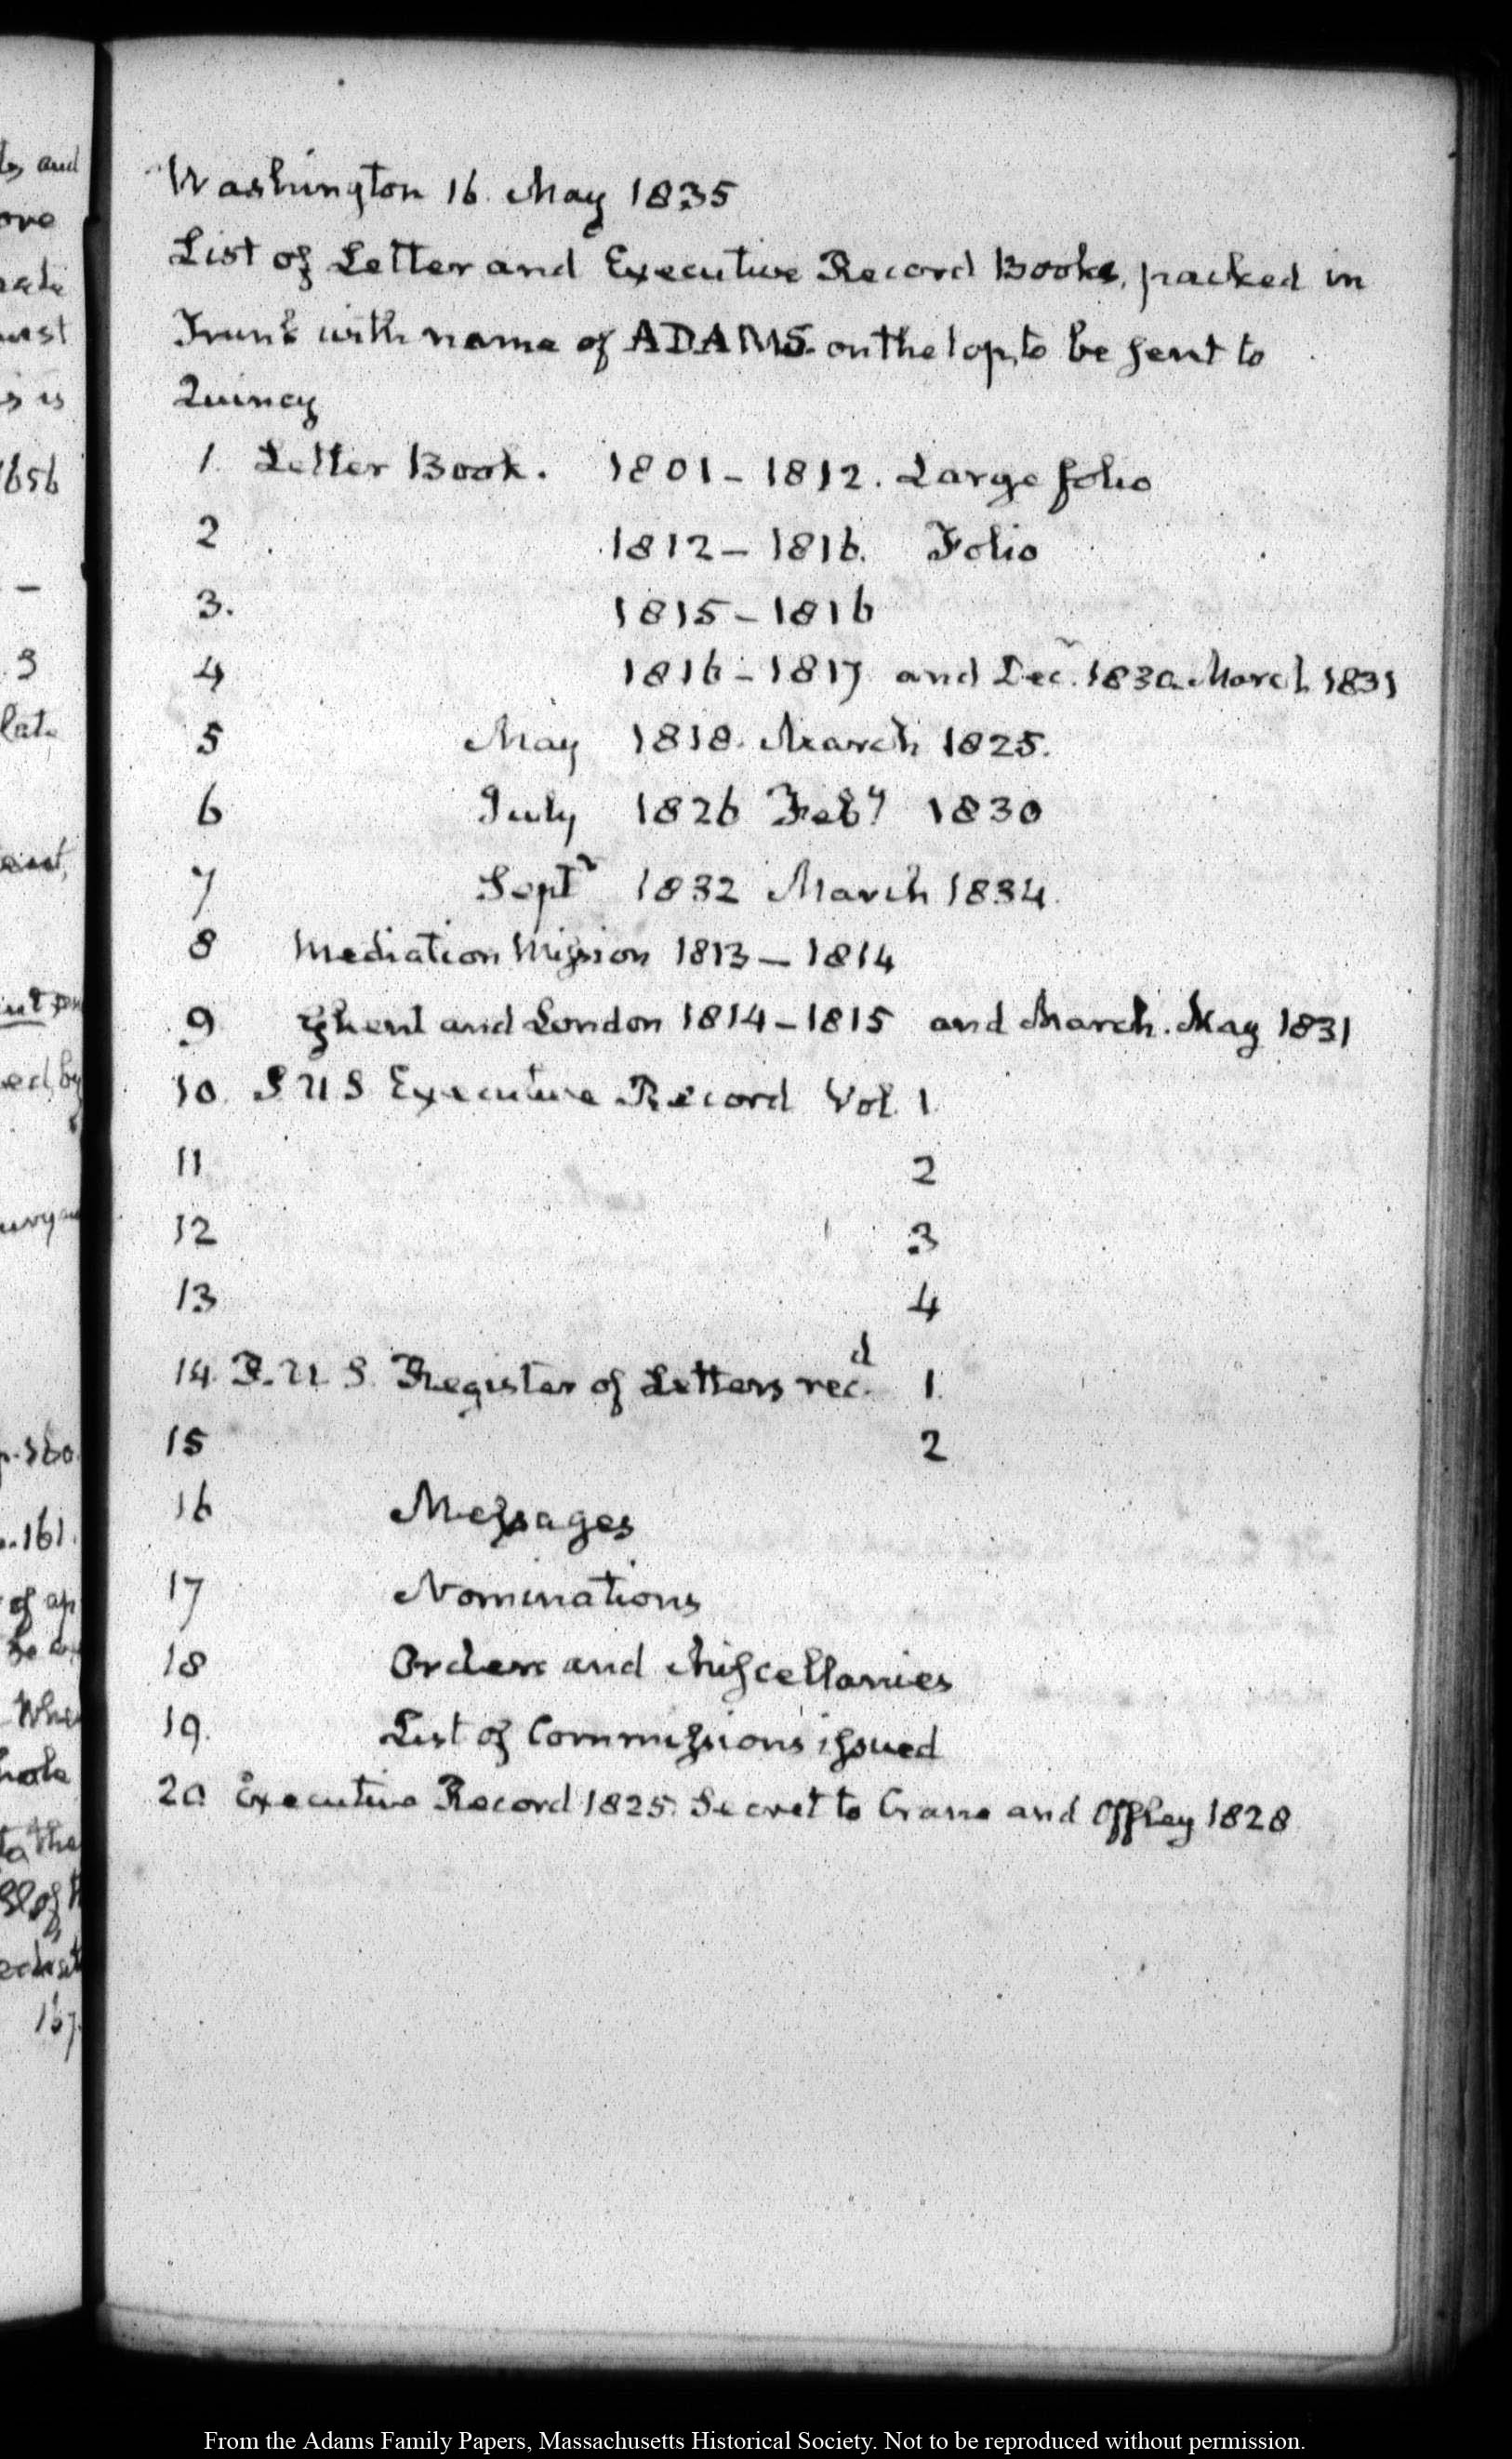 Washington 16. May 1835
List of Letter and Executive Record Books, packed in
Trunk with name of ADAMS. on the top, to be sent to
Quincy
1. Letter Book. 1801 - 1812. Large folio
2 1812 - 1816. Folio
3. 1815 - 1816
4 1816 - 1817 and Decr. 1830. March 1831
5 May 1818. March 1825.
6 July 1826 Feby 1830
7 Septr 1832 March 1834.
8 Mediation Mission 1813 - 1814
9 Ghent and London 1814 - 1815 and March. May 1831
10. S U S Executive Record Vol. 1.
11 2
12 3
13 4
14. P. U S. Register of Letters recd. 1.
15 2
16 Messages
17 Nominations
18 Orders and Miscellanies
19. List of Commissions issued
20 Executive Record 1825. Secret to Crane and Offley 1828
From the Adams Family Papers, Massachusetts Historical Society. Not to be reproduced without permission.